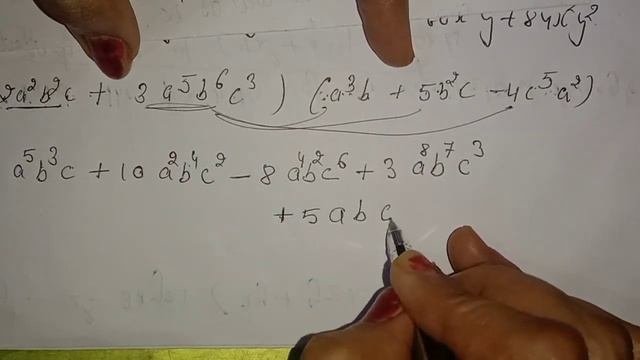 y + 84x(y²
2a²b²c + 3 a⁵b⁶c³) (a³b + 5b²c - 4c⁵a²)
a⁵b³c + 10 a²b⁴c² - 8 a⁴b²c⁶ + 3 a⁸b⁷c³
+ 5 a b c